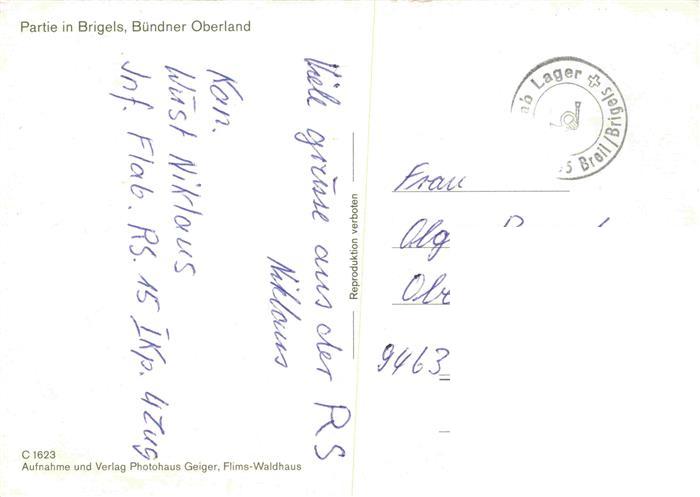 Partie in Brigels, Bündner Oberland
Viele grüsse aus der RS
Niklaus
Kan.
Wüst Niklaus
Inf. Flab. RS. 15 I Kp. 4 Zug
Reproduktion verboten
Lager
Breil/Brigels
Frau
Olg
9463
C 1623
Aufnahme und Verlag Photohaus Geiger, Flims-Waldhaus